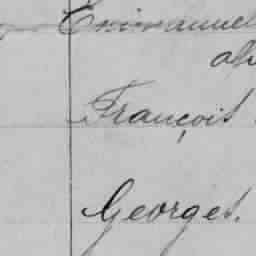 Emmanuel
François
Georges.